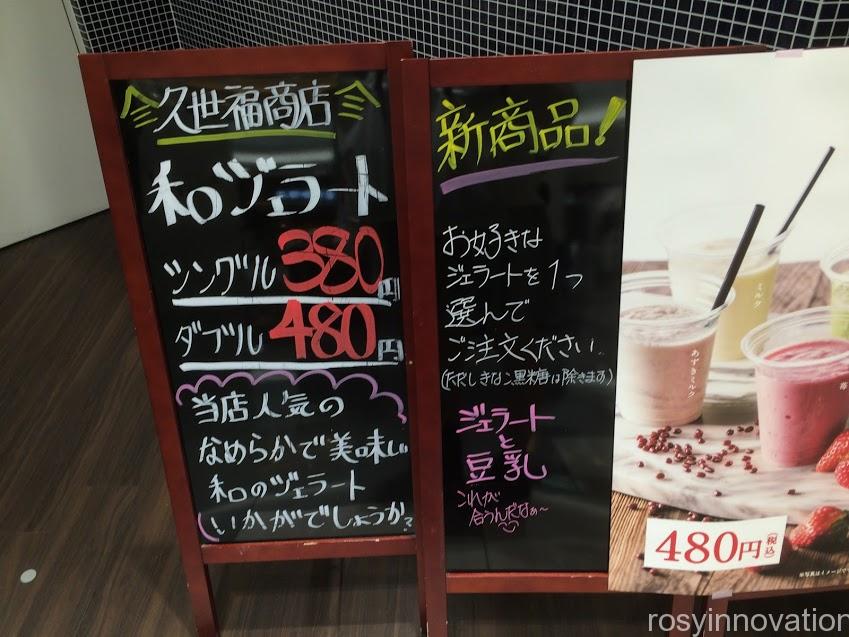 久世福商店
和ジェラート
シングル 380円
ダブル 480円
当店人気の
なめらかで美味しい
和のジェラート
いかがでしょうか?
新商品!
お好きな
ジェラートを1つ
選んで
ご注文ください。
(ただしきなこ黒糖は除きます)
ジェラート
と
豆乳
これが
合うんだなぁ~
ミルク
あずきミルク
苺
480円(税込)
※写真はイメージで
rosyinnovation